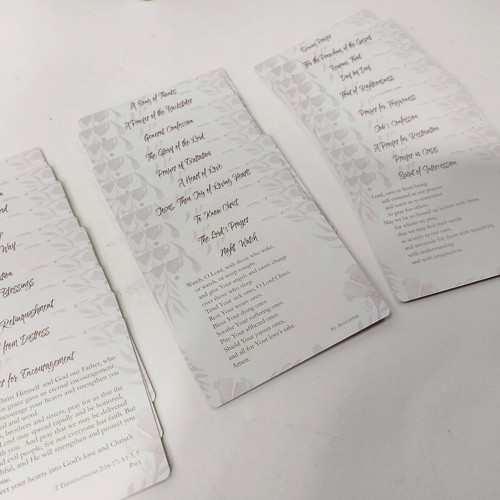 Way
Blessings
Relinquishment
from Distress
for Encouragement
Christ Himself and God our Father, who
grace gave us eternal encouragement
encourage your hearts and strengthen you
and word.
brothers and sisters, pray for us that the
Lord may spread rapidly and be honored,
with you. And pray that we may be delivered
and evil people, for not everyone has faith. But
faithful, and He will strengthen and protect you
one.
direct your hearts into God's love and Christ's
2 Thessalonians 2:16-17, 3:1-3, 5
Paul
A Hymn of Thanks
A Prayer of the Backslider
General Confession
The Glory of the Lord
Prayer of Exaltation
A Heart of Love
Jesus, Thou Joy of Loving Hearts
To Know Christ
The Lord's Prayer
Night Watch
Watch, O Lord, with those who wake,
or watch, or weep tonight,
and give Your angels and saints charge
over those who sleep.
Tend Your sick ones, O Lord Christ.
Rest Your weary ones.
Bless Your dying ones.
Soothe Your suffering ones.
Pity Your afflicted ones.
Shield Your joyous ones,
and all for Your love's sake.
Amen.
St. Augustine
Evening Prayer
For the Preaching of the Gospel
Day by Day
of Righteousness
Prayer for Forgiveness
Job's Confession
A Prayer for Restoration
Prayer in Crisis
Spirit of Intercession
Lord, save us from being
self-centered in our prayers
and teach us to remember
to pray for others.
May we be so bound up in love with those
for whom we pray
that we may feel their needs
as acutely as our own,
and intercede for them with sensitivity,
with understanding
and with imagination.